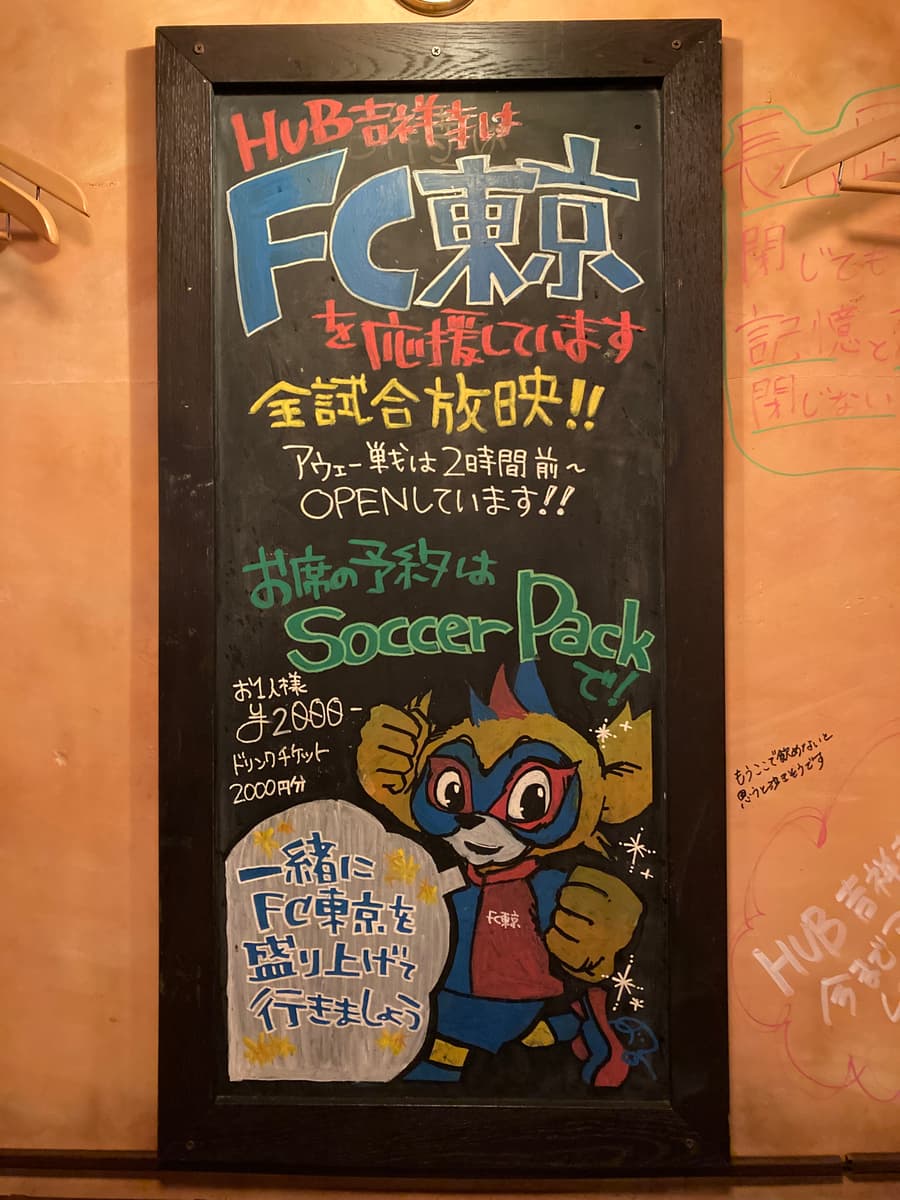 HUB吉祥寺は
FC東京
を応援しています
全試合放映!!
アウェー戦は2時間前~
OPENしています!!
お席の予約は
Soccer Pack
で!
お1人様
¥2000-
ドリンクチケット
2000円分
一緒に
FC東京を
盛り上げて
行きましょう
FC東京
閉じても
記憶と
閉じない
もうここで飲めないと
思うと
HUB吉祥
今まで